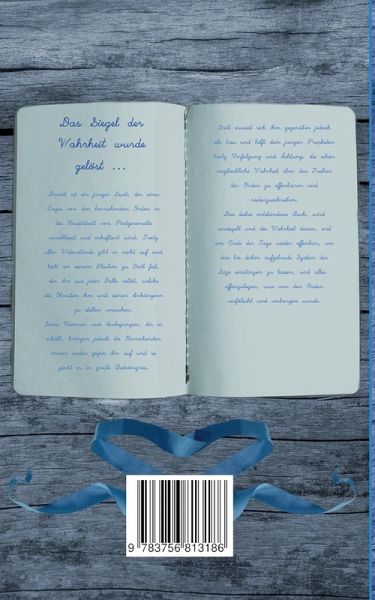 Das Siegel der
Wahrheit wurde
gelöst ...
Daniel ist ein junger Jurist, der eines
Tages von den herrschenden Orden in
die Hauptstadt von
verschleppt und inhaftiert wird. Trotz
aller Widerstände gibt er nicht auf und
hält an seinem Glauben zu Gott fest,
der ihn aus jeder Falle rettet, welche
die Obersten ihm und seinen Anhängern
zu stellen versuchen.
Seine Visionen und Auslegungen, die er
erhält, bringen jedoch die Herrschenden
immer weiter gegen ihn auf und so
gerät er in große Bedrängnis.
Gott erweist sich ihm gegenüber jedoch
als treu und hilft dem jungen Propheten
trotz Verfolgung und Ächtung, die schier
unglaubliche Wahrheit über das Treiben
der Orden zu offenbaren und
niederzuschreiben.
Das dabei entstandene Buch, wird
versiegelt und die Wahrheit darin, erst
am Ende der Tage wieder offenbar, um
das bis dahin aufgebaute System der
Lüge einstürzen zu lassen, und alles
offenzulegen, was von den Orden
verfälscht und verborgen wurde.
9 783756 813186